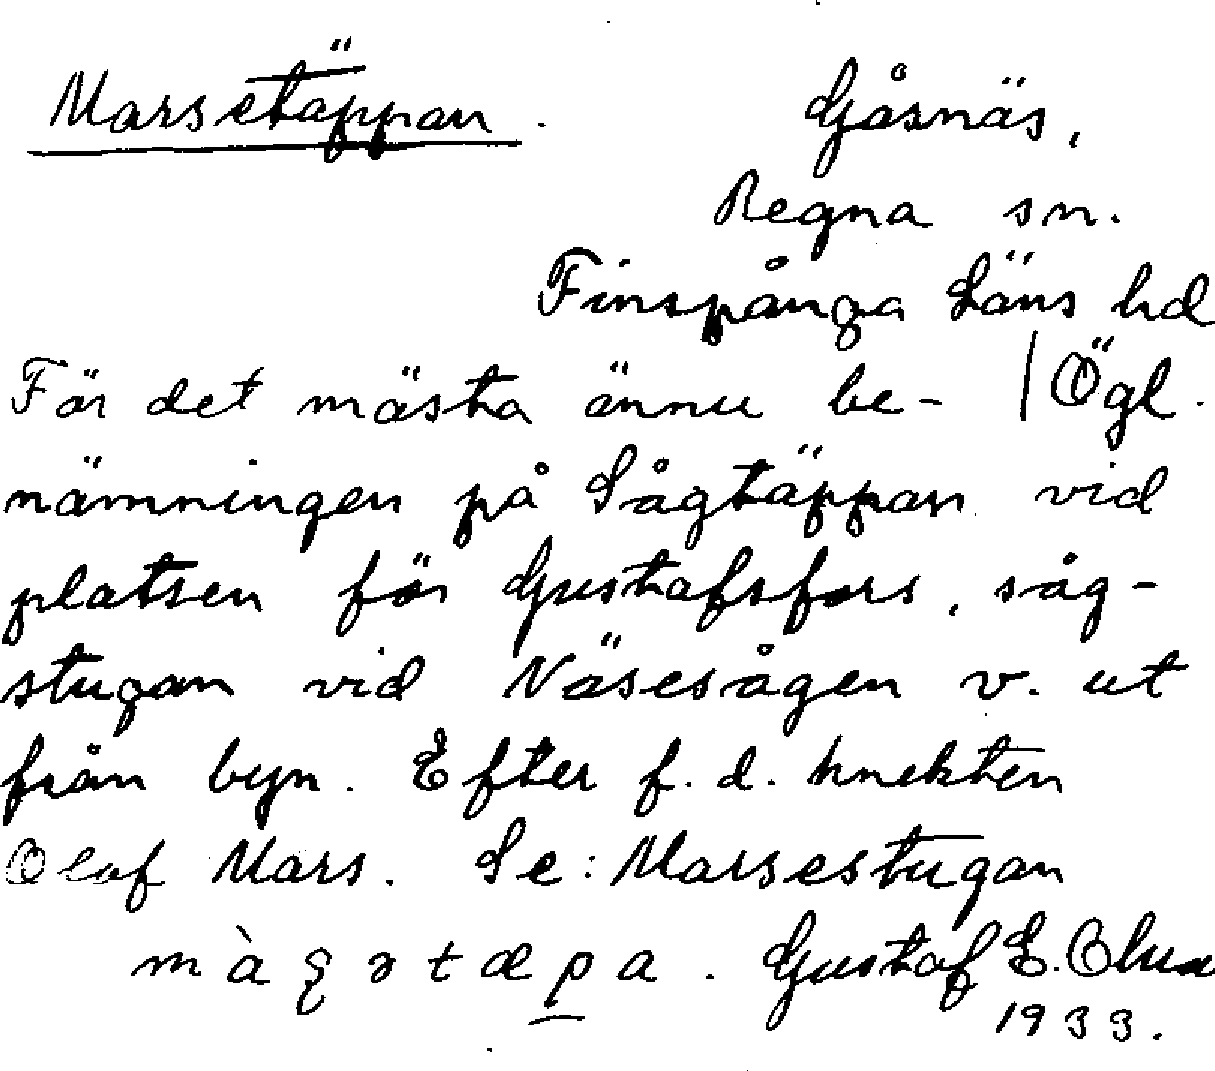 Marsetäppan. Gåsnäs,
Regna sn.
Finspånga Läns hd
För det mästa ännu be- | Ögl.
nämningen på Sågtäppan vid
platsen för Gustafsfors, såg-
stugan vid Näsesågen v. ut
från byn. Efter f.d. knekten
Olof Mars. Se: Marsestugan
Gustaf E.
1933.